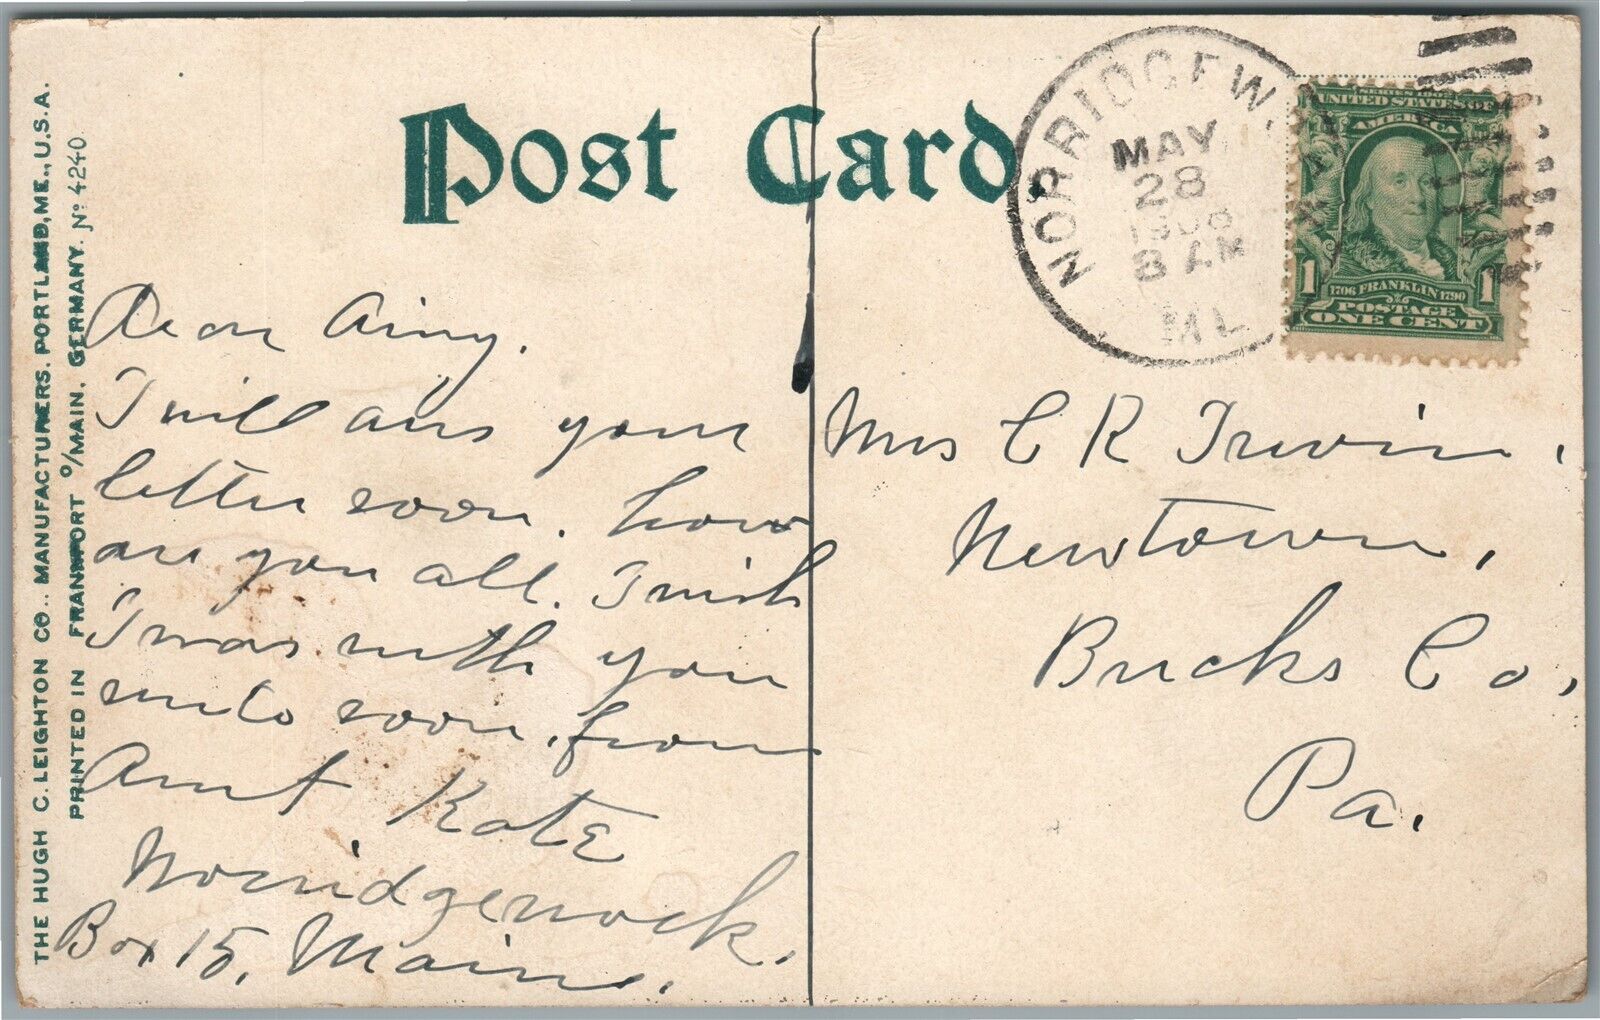 Post Card.
THE HUGH C. LEIGHTON CO., MANUFACTURERS, PORTLAND, ME., U.S.A.
PRINTED IN FRANKFORT O/MAIN, GERMANY. No 4240
NORRIDGEW.
MAY
28
8 AM
ME
SERIES 1902
UNITED STATES OF
AMERICA
1 1
1706 FRANKLIN 1790
POSTAGE
ONE CENT
Dear Amy.
I will ans your
letter soon. how
are you all. I wish
I was with you
write soon. from
Aunt Kate
Norridgewock.
Box 15, Maine.
Mrs C R Irwin,
Newtown,
Bucks Co,
Pa.